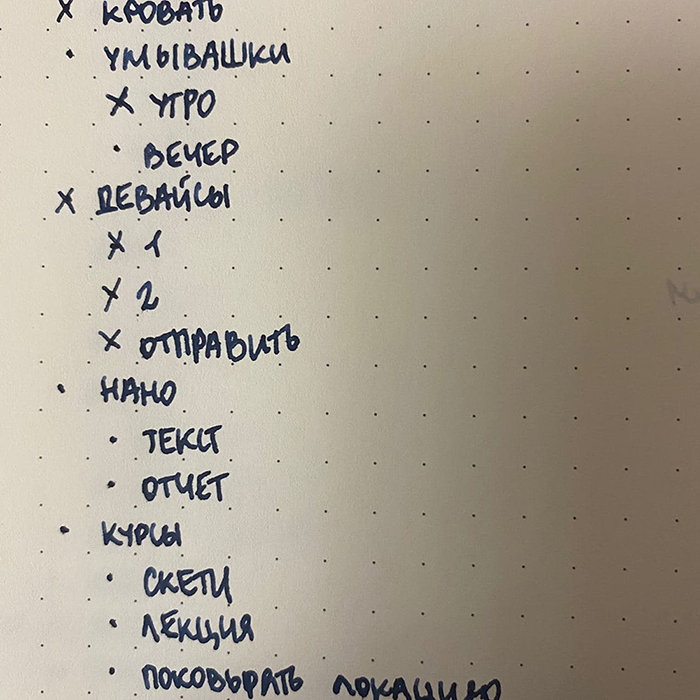 × КРОВАТЬ
· УМЫВАШКИ
× УТРО
· ВЕЧЕР
× ДЕВАЙСЫ
× 1
× 2
× ОТПРАВИТЬ
· НАНО
· ТЕКСТ
· ОТЧЕТ
· КУРСЫ
· СКЕТЧ
· ЛЕКЦИЯ
· ПОКОВЫРЯТЬ ЛОКАЦИЮ